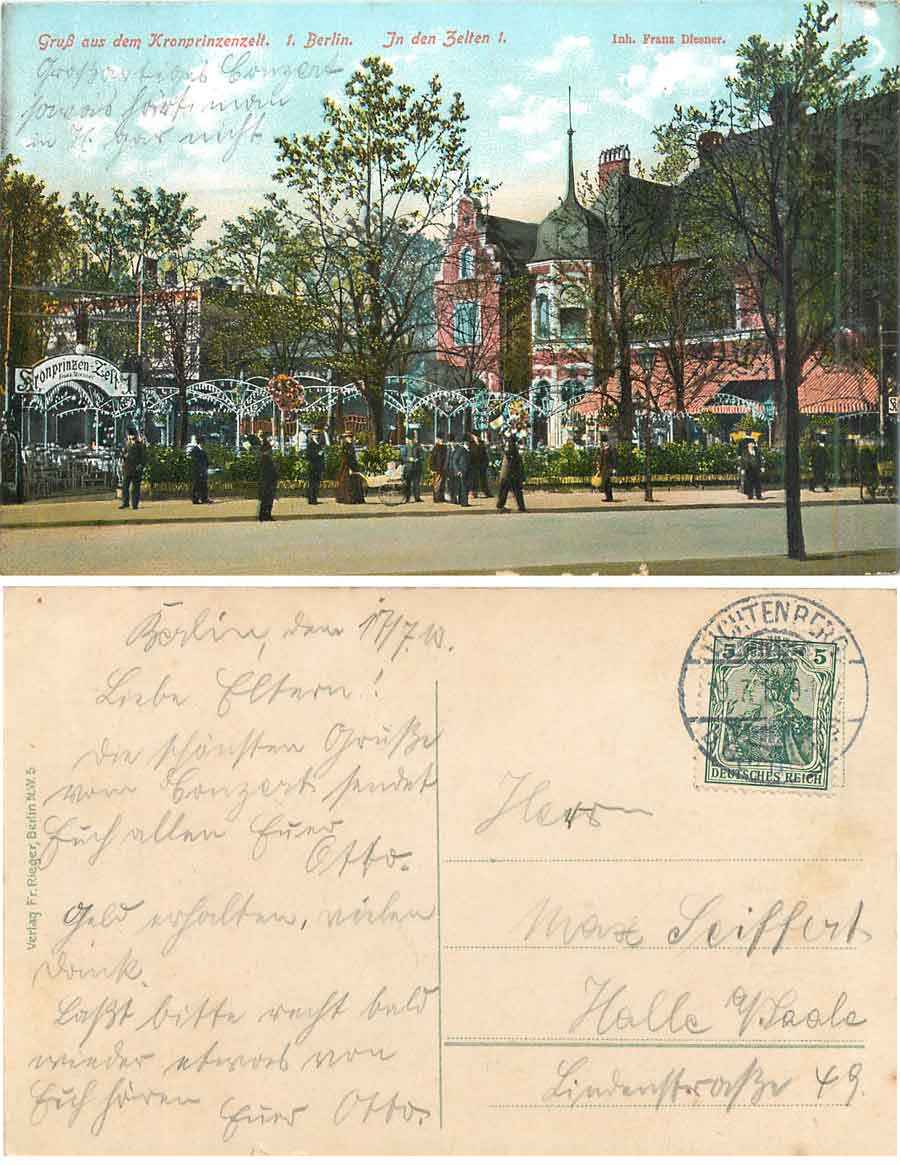 Gruß aus dem Kronprinzenzelt. 1. Berlin. In den Zelten 1. Inh. Franz Diesner.
Großartiges Conzert
sowas hört man
in H. gar nicht
Kronprinzen-Zelt 1
Franz Diesner
LICHTENBERG
5 5
DEUTSCHES REICH
Berlin, den 17/7.10.
Liebe Eltern!
Die schönsten Grüße
vom Conzert sendet
Euch allen Euer
Otto.
Geld erhalten, vielen
Dank.
Laßt bitte recht bald
wieder etwas von
Euch hören
Euer Otto.
Verlag Fr. Rieger, Berlin N.W. 5
Herrn
Max Seiffert
Halle a/Saale
Lindenstraße 49.